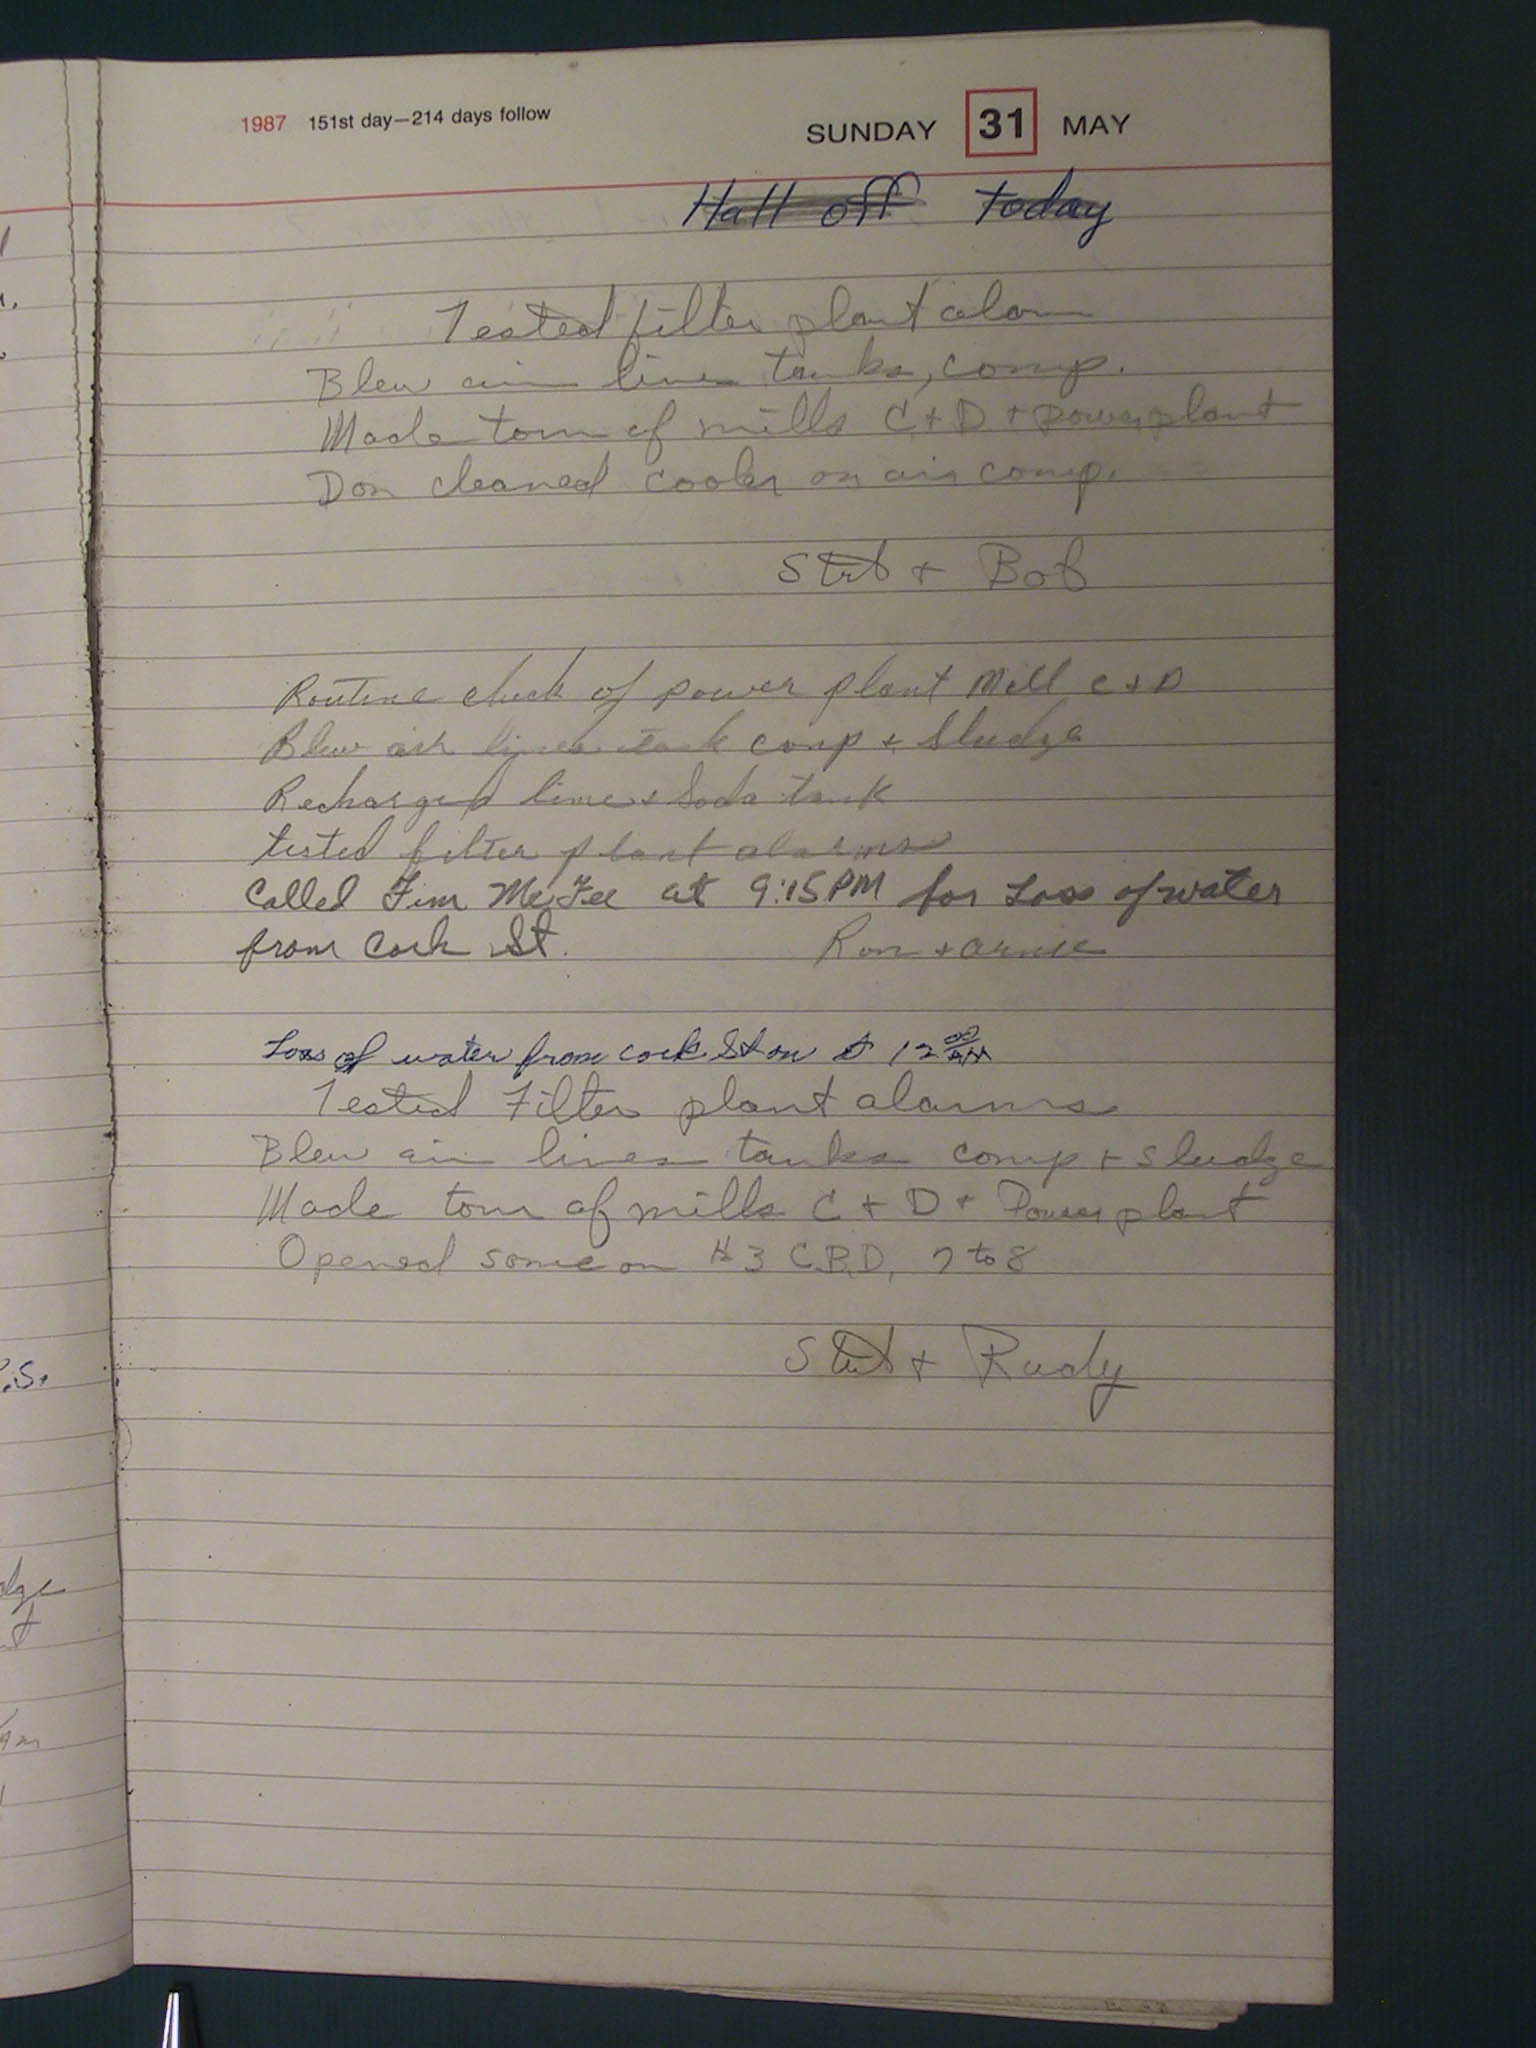 1987 151st day—214 days follow
SUNDAY 31 MAY
Hall off today
Tested filter plant alarm
Blew air lines tanks, comp.
Made tour of mills C + D + powerplant
Don cleaned cooler on air comp.
Stub + Bob
Routine check of power plant Mill C + D
Blew air lines tank comp + Sludge
Recharged lime + Soda tank
tested filter plant alarms
Called Jim McFee at 9:15 PM for Loss of water
from Cork St.
Ron + Arnie
Loss of water from cork St on 12 00 AM
Tested Filter plant alarms
Blew air lines tanks comp + sludge
Made tour of mills C + D + Power plant
Opened some on #3 C.B.D, 7 to 8
Stub + Rudy
.S.